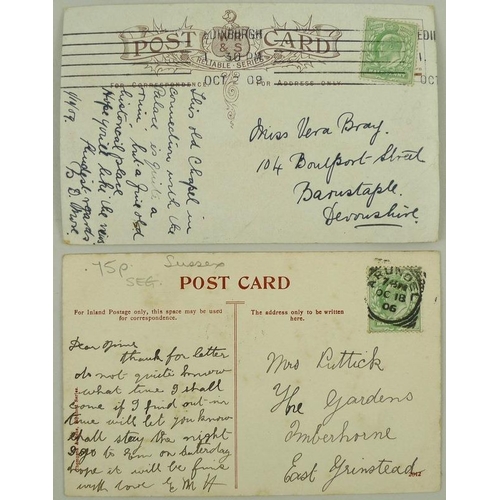 POST CARD
EDINBURGH
& S
RELIABLE SERIES
OCT 09
EDIN
OCT
FOR CORRESPONDENCE
FOR ADDRESS ONLY
This old Chapel in
connection with the
Palace is quite a
ruin, but a fine old
historical place
Hope you'll like the view
Kindest regards
Miss Vera Bray.
104 Boutport Street
Barnstaple.
Devonshire.
15p
SEG.
Sussex
POST CARD
ARUNDEL
7 AM
OC 18
06
For Inland Postage only, this space may be used
for correspondence.
The address only to be written
here.
Dear
thank for letter
do not quite know
what time I shall
come if I find out in
time will let you know
shall stay the night
I go to on Saturday
hope it will be fine
with love E M H
Mrs Puttick
The Gardens
Imberhorne
East Grinstead